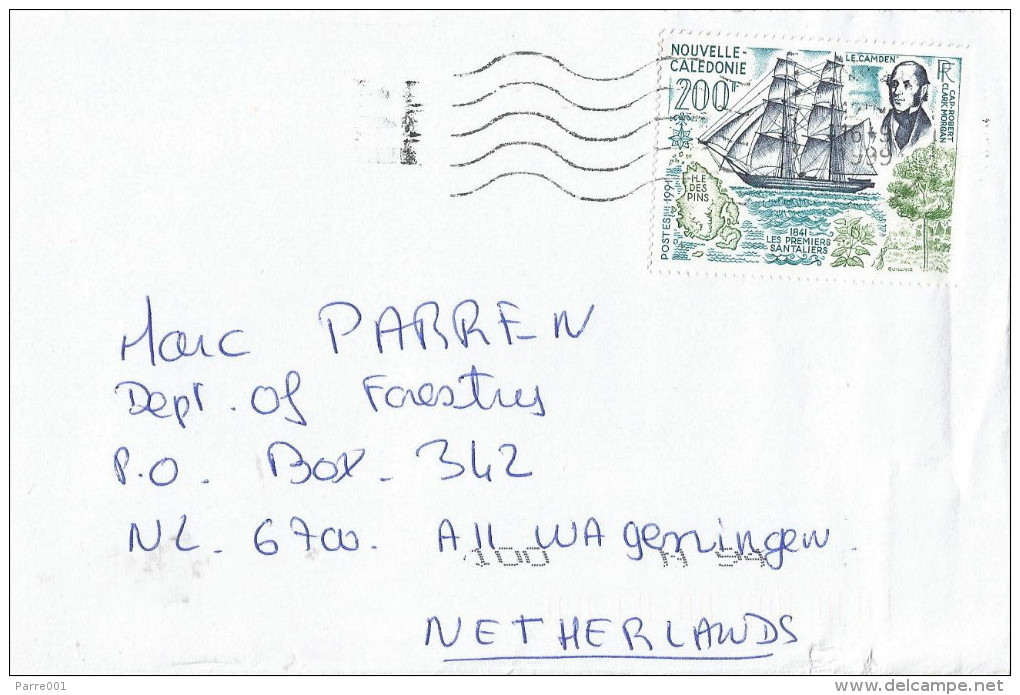 NOUVELLE-
CALÉDONIE
200F
"LE CAMDEN"
RF
CAP. ROBERT
CLARK MORGAN
ILE
DES
PINS
POSTES 1991
1841
LES PREMIERS
SANTALIERS
QUILLIVIC
Marc PARREN
Dept. of Forestry
P.O. Box. 342
NL. 6700. AH WAgeningen.
NETHERLANDS
Parre001
www.delcampe.net